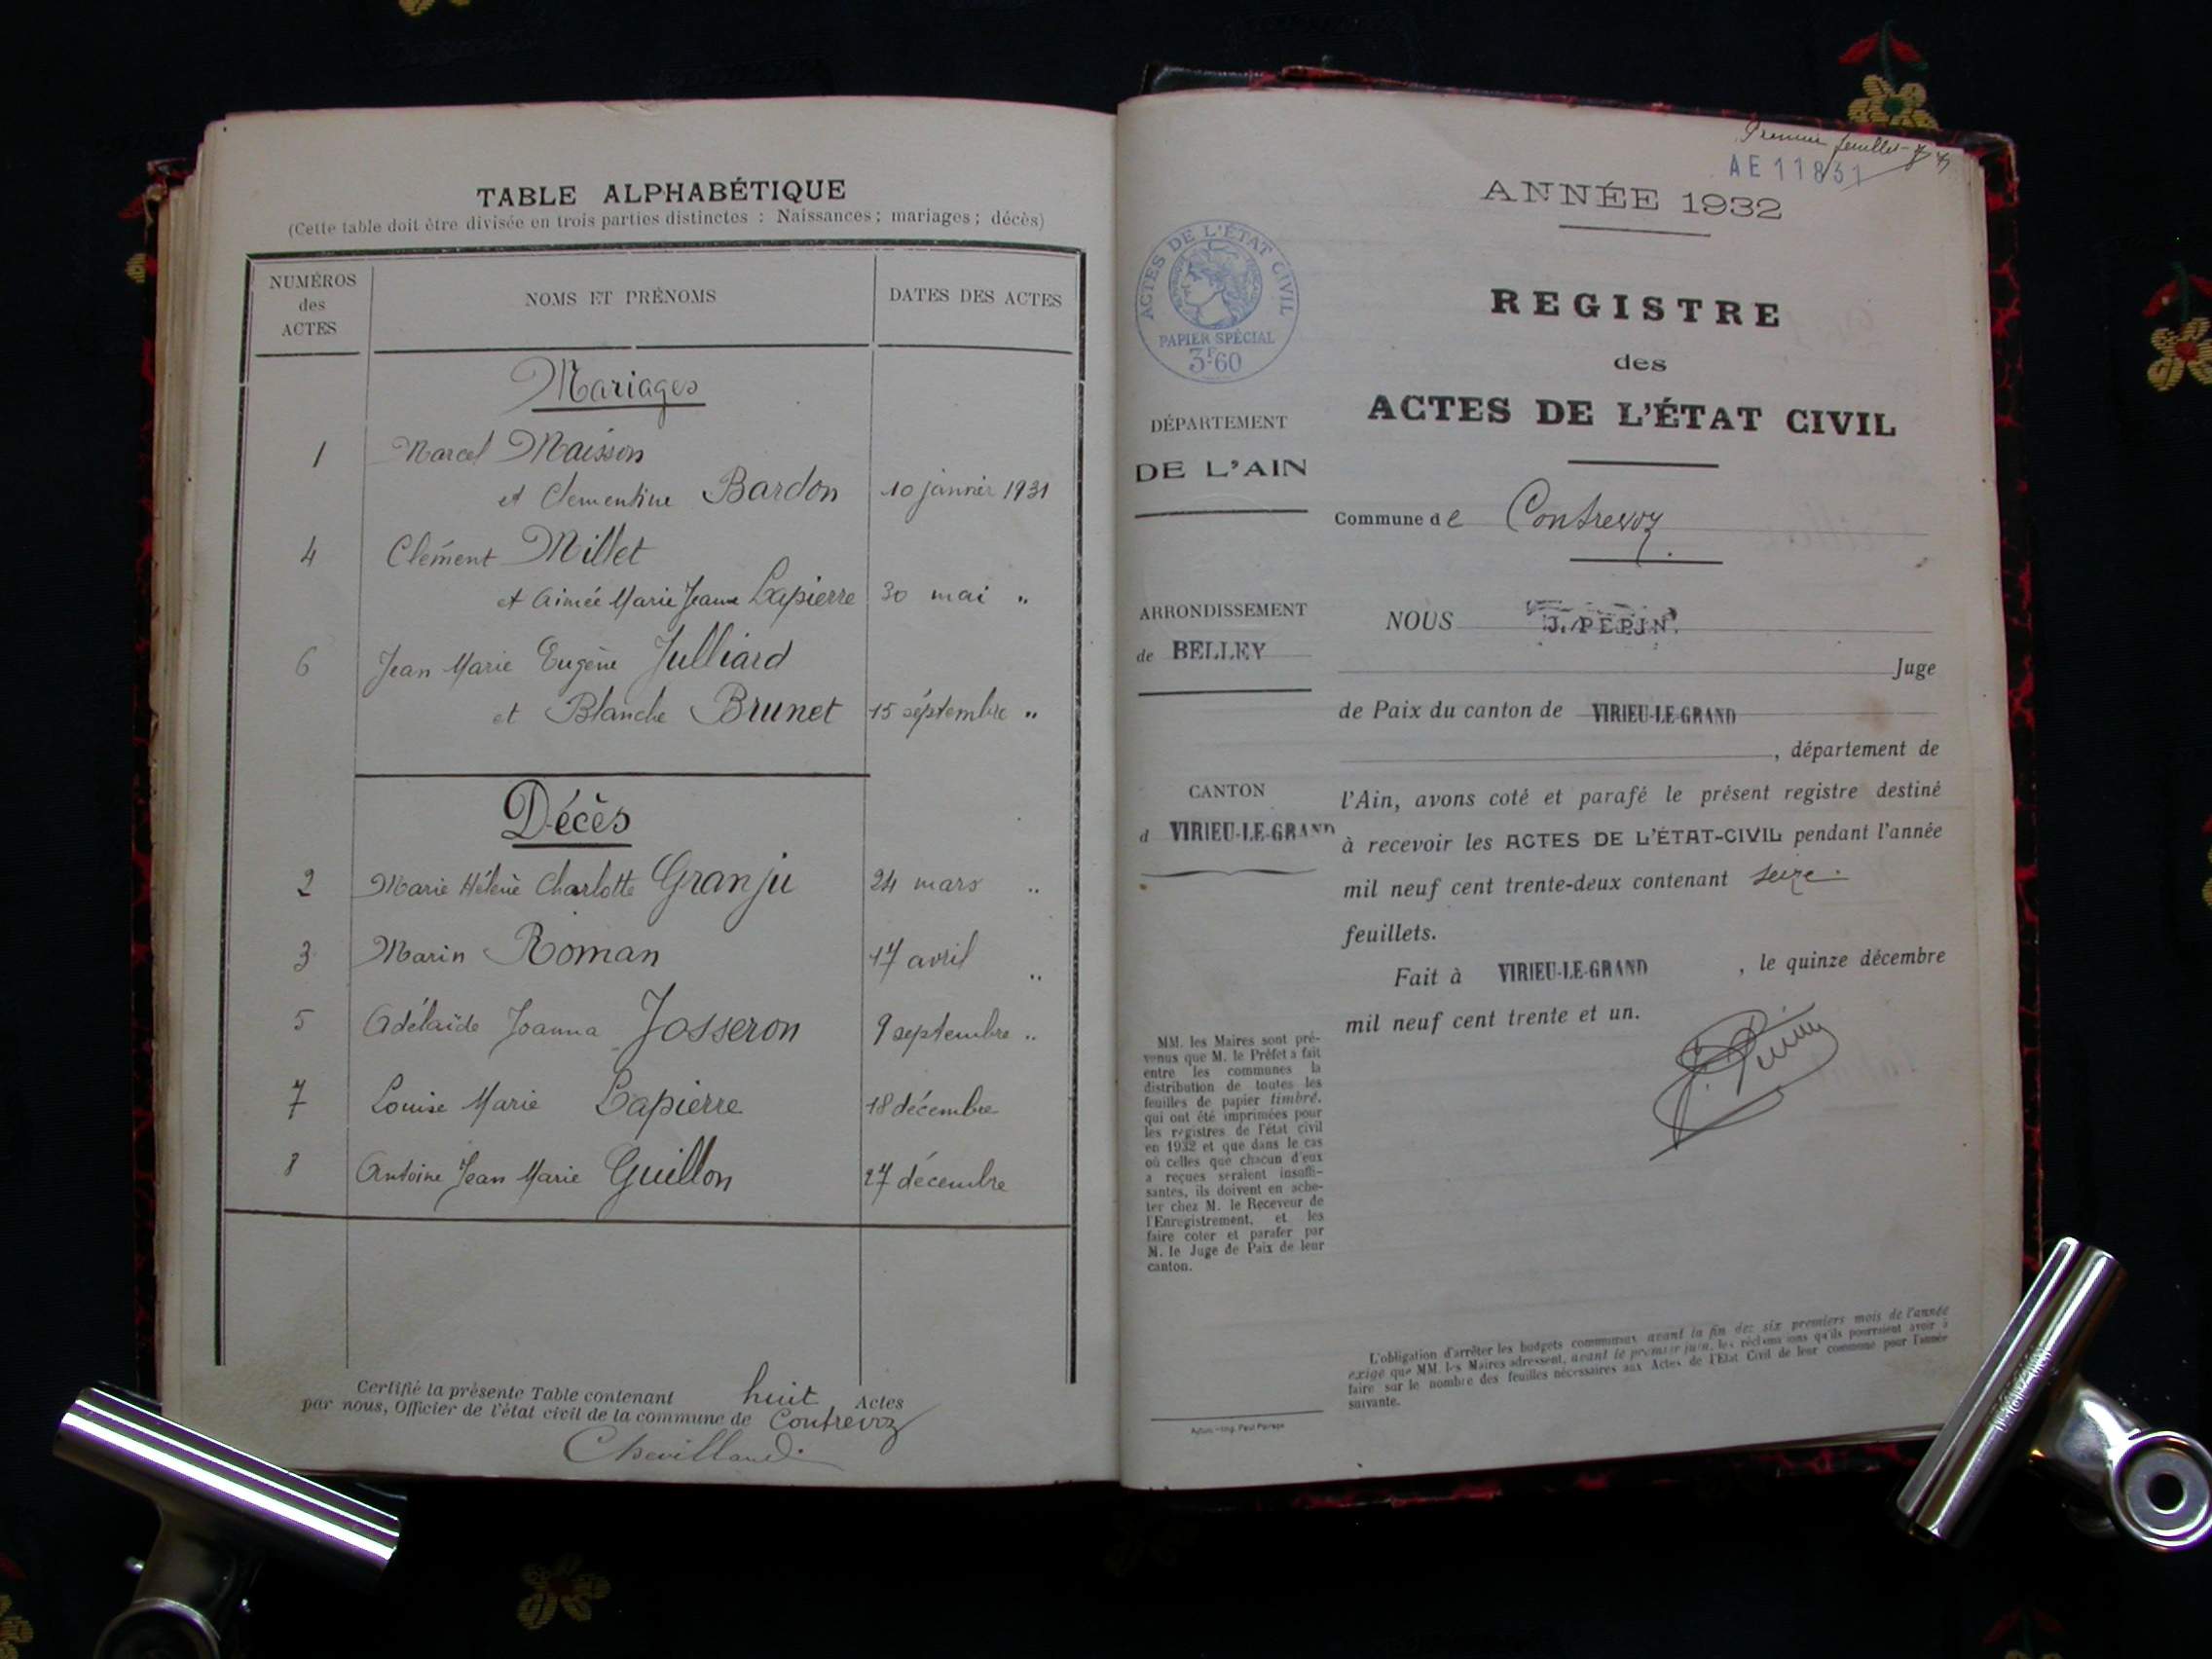 TABLE ALPHABÉTIQUE
(Cette table doit être divisée en trois parties distinctes : Naissances ; mariages ; décès)
NUMÉROS
des
ACTES
NOMS ET PRÉNOMS
DATES DES ACTES
Mariages
1 Marcel Maisson
et Clementine Bardon 10 janvier 1931
4 Clément Millet
et Aimée Marie Jeanne Lapierre 30 mai "
6 Jean Marie Eugène Julliard
et Blanche Brunet 15 séptembre "
Décès
2 Marie Hélène Charlotte Granju 24 mars "
3 Marin Roman 17 avril "
5 Adélaïde Joanna Josseron 9 septembre "
7 Louise Marie Lapierre 18 décembre
8 Antoine Jean Marie Guillon 27 décembre
Certifié la présente Table contenant huit Actes
par nous, Officier de l'état civil de la commune de Contrevoz
Premier feuillet
AE 11831
ANNÉE 1932
ACTES DE L'ÉTAT CIVIL
PAPIER SPÉCIAL
3F60
REGISTRE
des
ACTES DE L'ÉTAT CIVIL
DÉPARTEMENT
DE L'AIN
Commune de Contrevoz
ARRONDISSEMENT
de BELLEY
NOUS J. PÉPIN
Juge
de Paix du canton de VIRIEU-LE-GRAND
, département de
CANTON
d VIRIEU-LE-GRAND
l'Ain, avons coté et parafé le présent registre destiné
à recevoir les ACTES DE L'ÉTAT-CIVIL pendant l'année
mil neuf cent trente-deux contenant seize
feuillets.
Fait à VIRIEU-LE-GRAND , le quinze décembre
mil neuf cent trente et un.
MM. les Maires sont pré-
venus que M. le Préfet a fait
entre les communes la
distribution de toutes les
feuilles de papier timbré,
qui ont été imprimées pour
les registres de l'état civil
en 1932 et que dans le cas
où celles que chacun d'eux
a reçues seraient insuffi-
santes, ils doivent en ache-
ter chez M. le Receveur de
l'Enregistrement, et les
faire coter et parafer par
M. le Juge de Paix de leur
canton.
L'obligation d'arrêter les budgets communaux avant la fin des six premiers mois de l'année
exige que MM. les Maires adressent, avant le premier juin, les réclamations qu'ils pourraient avoir à
faire sur le nombre des feuilles nécessaires aux Actes de l'Etat Civil de leur commune pour l'année
suivante.